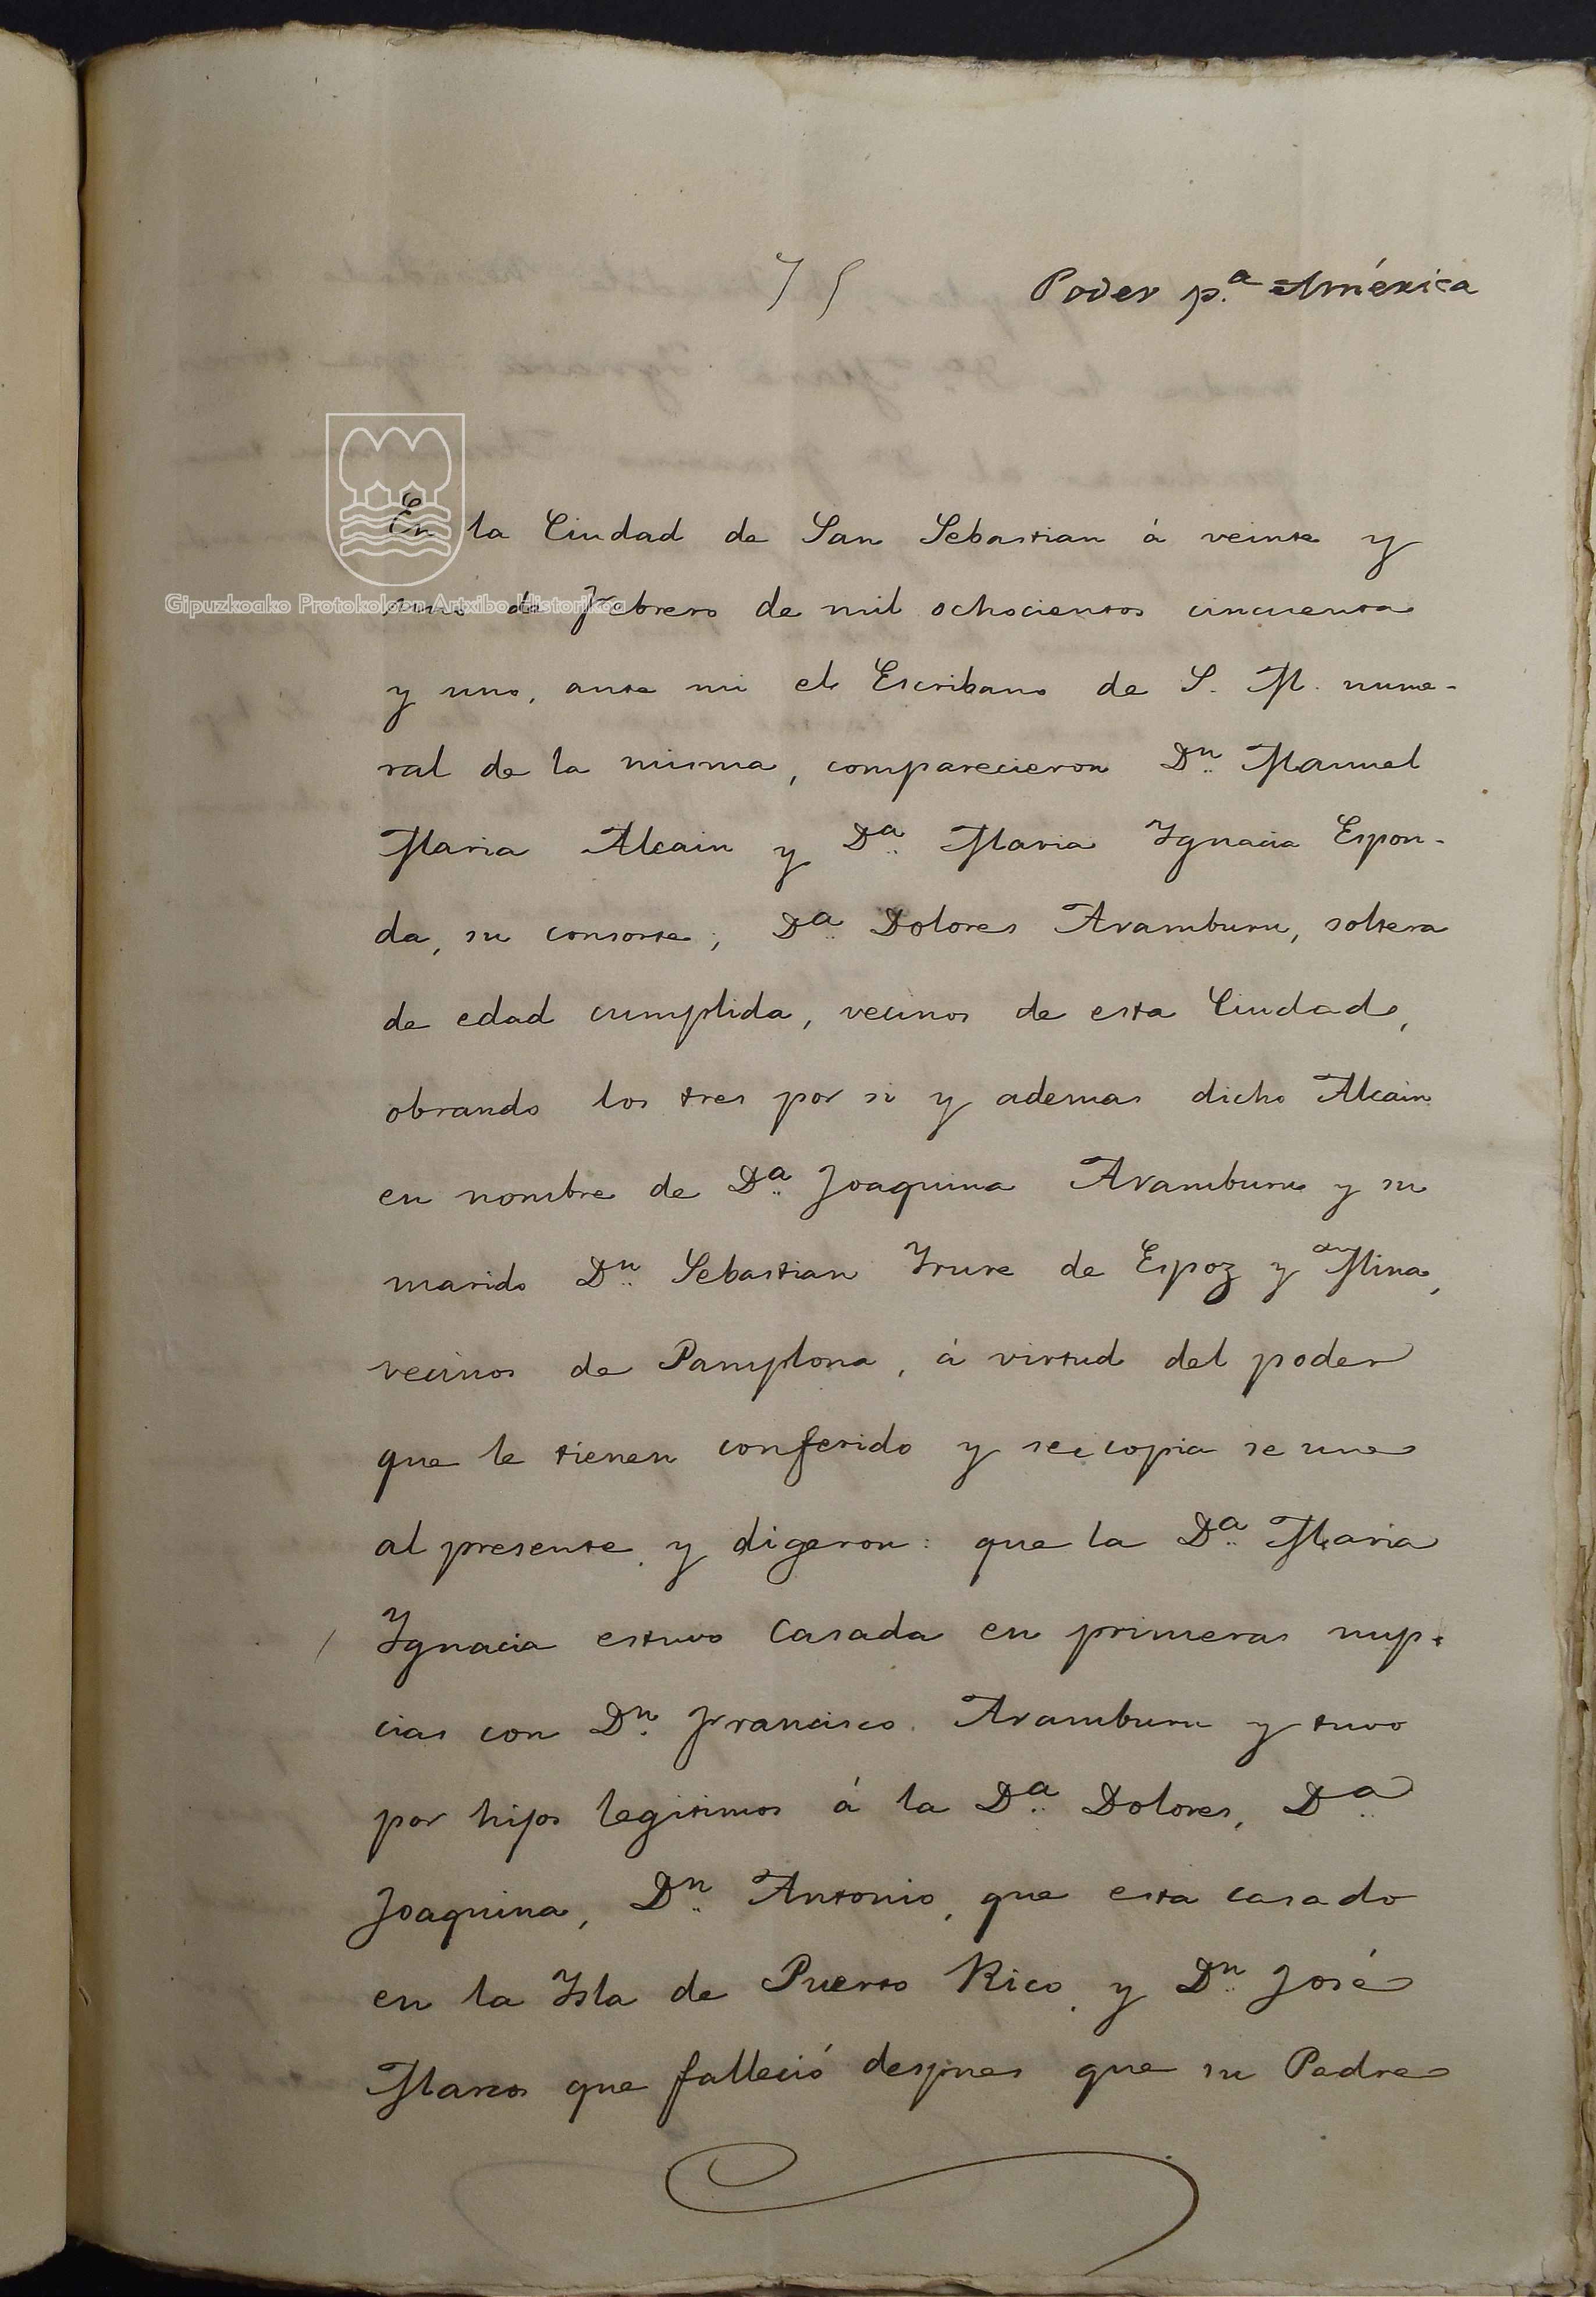 75
Poder p.ª América
En la Ciudad de San Sebastian á veinte y
Gipuzkoako Protokoloen Artxibo Historikoa
uno de Febrero de mil ochocientos cincuenta
y uno, ante mi el Escribano de S. M. nume-
ral de la misma, comparecieron Dn. Manuel
Maria Alcain y Da. Maria Ygnacia Espon-
da, su consorte; Da. Dolores Aramburu, soltera
de edad cumplida, vecinos de esta Ciudad,
obrando los tres por si y ademas dicho Alcain
en nombre de Da. Joaquina Aramburu y su
marido Dn. Sebastian Yrure de Espoz y Mina,
vecinos de Pamplona, á virtud del poder
que le tienen conferido y copia se une
al presente, y digeron: que la Da. Maria
Ygnacia estuvo casada en primeras nup-
cias con Dn. Francisco Aramburu y tuvo
por hijos legitimos á la Da. Dolores, Da.
Joaquina, Dn. Antonio, que esta casado
en la Ysla de Puerto Rico, y Dn. José
Marcos que falleció despues que su Padre